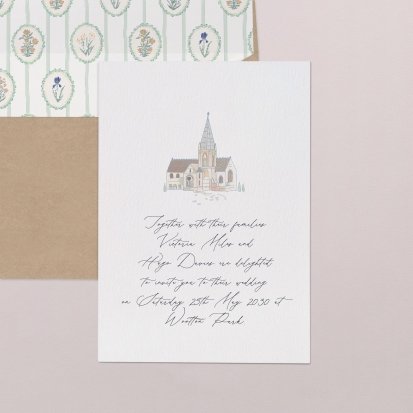 Together with their families
Victoria Miles and
Hugo Davies are delighted
to invite you to their wedding
on Saturday 25th May 2030 at
Wootton Park